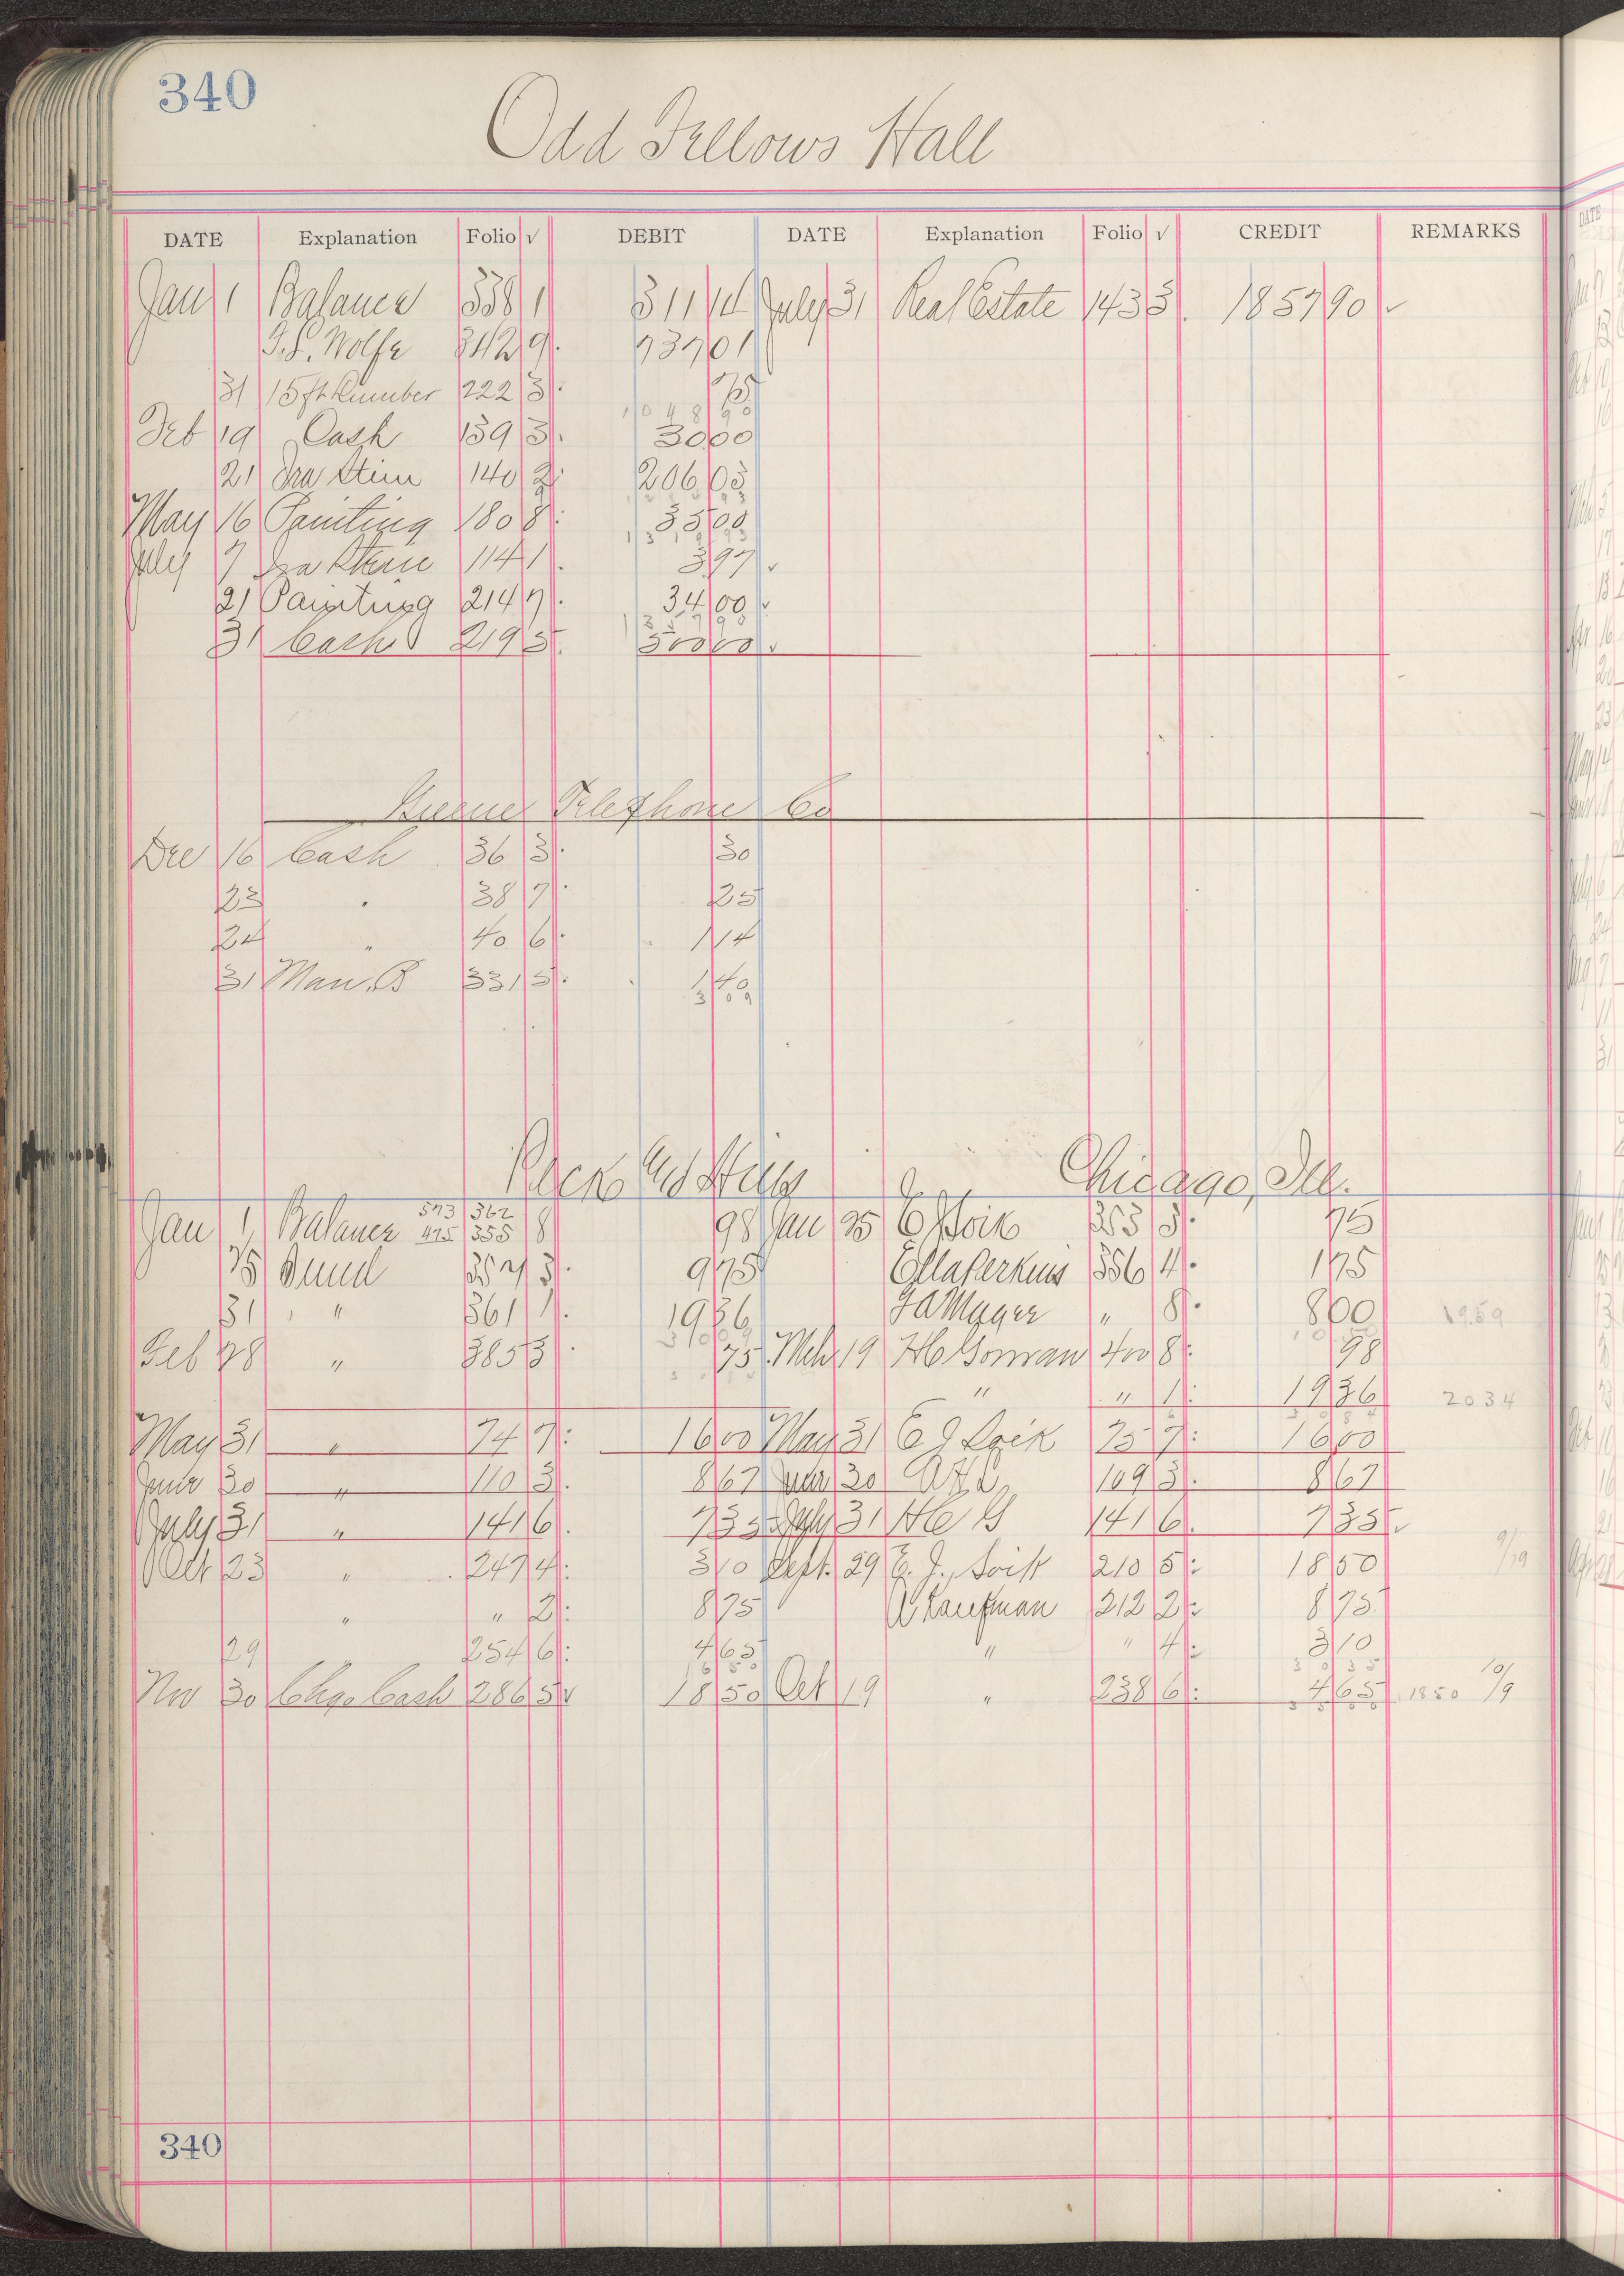 340
Odd Fellows Hall
DATE Explanation Folio √ DEBIT DATE Explanation Folio √ CREDIT REMARKS
Jan 1 Balance 338 1 311 14 July 31 Real Estate 143 3 1857 90
Wolfe 342 9 737 01
31 15 ft Lumber 222 3 75
1048 90
Feb 19 Cash 139 3 30 00
21 Ira Stein 140 2 206 03
May 16 Painting 180 8 35 00
July 7 Ira Stein 114 1 3 97
21 Painting 214 7 34 00
31 Cash 219 5 500 00
Telephone Co
Dec 16 Cash 36 3 30
23 " 38 7 25
24 " 40 6 1 14
31 Man. B 331 5 1 40
3 09
Chicago, Ill.
573 362
Jan 1 Balance 475 355 8 98 Jan 25 353 3 75
25 357 3 9 75 Ella Perkins 356 4 1 75
31 " 361 1 19 36 " 8 8 00 1959
Feb 28 " 385 3 75 Mch 19 400 8 98
" " 1 19 36 2034
May 31 " 74 7 16 00 May 31 75 7 16 00
June 30 " 110 3 8 67 June 30 109 3 8 67
July 31 " 141 6 7 35 July 31 141 6 7 35
Oct 23 " 247 4 3 10 Sept. 29 210 5 18 50 9/19
" " 2 8 75 Kaufman 212 2 8 75
29 254 6 4 65 " " 4 3 10
Nov 30 Chgo Cash 286 5 18 50 Oct 19 " 238 6 4 65 1850 10/9
340